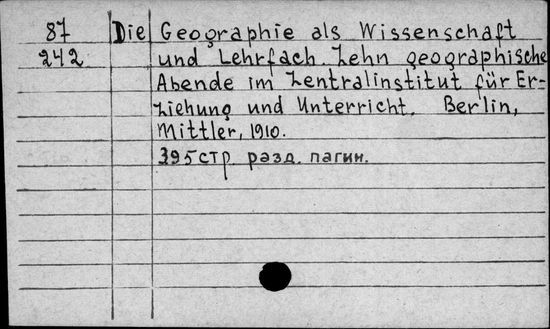 87 Die Geographie als Wissenschaft
242 und Lehrfach. Zehn geographische
Abende im Zentralinstitut für Er-
ziehung und Unterricht. Berlin,
Mittler, 1910.
395 стр разд. пагин.